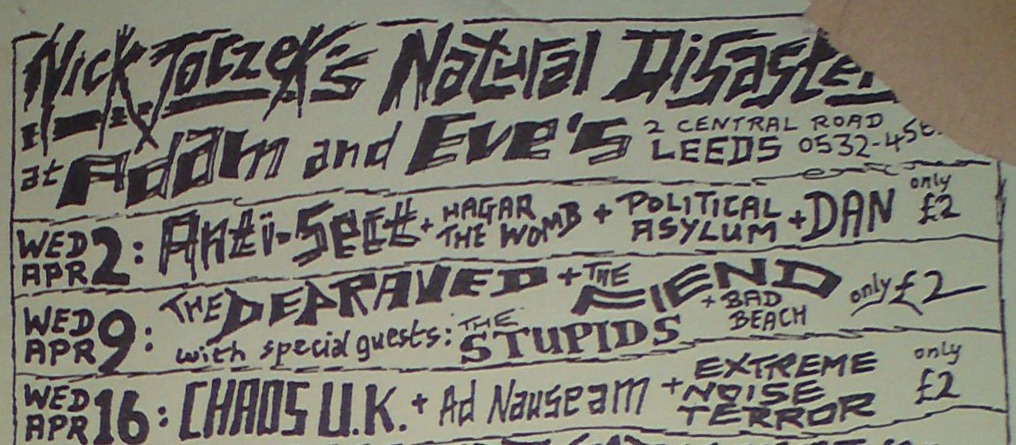 Nick Toczek's Natural Disaster
at Adam and Eve's 2 CENTRAL ROAD
LEEDS 0532-45
WED APR 2: Anti-Sect + HAGAR THE WOMB + POLITICAL ASYLUM + DAN only £2
WED APR 9: THE DEPRAVED + THE FIEND + BAD BEACH only £2
with special guests: THE STUPIDS
WED APR 16: CHAOS U.K. + Ad Nauseam + EXTREME NOISE TERROR only £2